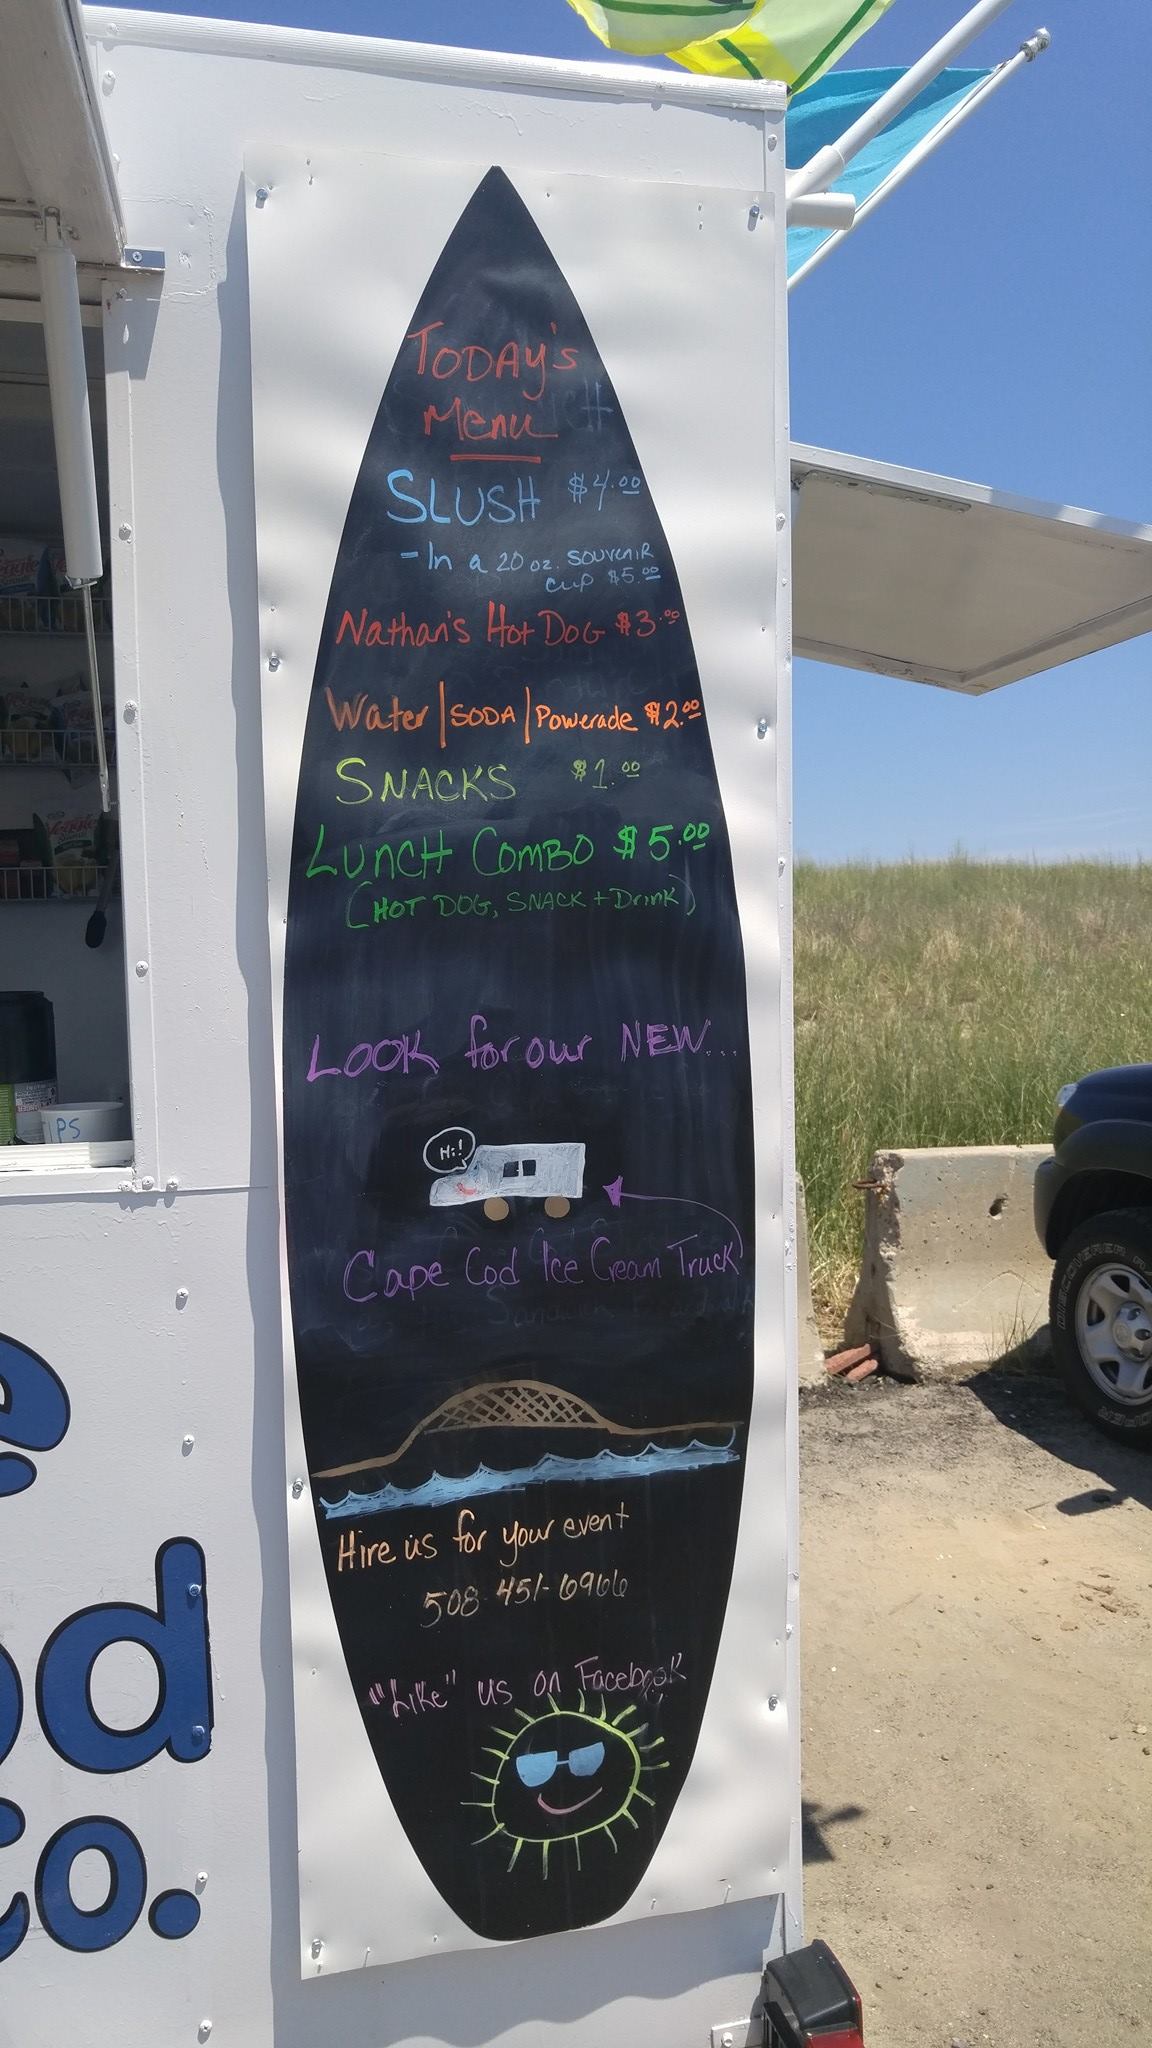 TODAY's
Menu
SLUSH $4.00
- In a 20 oz. SOUVENIR
cup $5.00
Nathan's Hot DOG $3.00
Water | SODA | Powerade $2.00
SNACKS $1.00
LUNCH COMBO $5.00
(HOT DOG, SNACK + Drink)
LOOK for our NEW...
Hi!
Cape Cod Ice Cream Truck
Hire us for your event
508-451-6966
"Like" us on Facebook
PS
Veggie
e
od
Co.